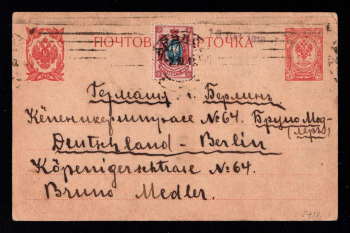 ПОЧТОВАЯ КАРТОЧКА
Германия г. Берлинъ
Кёпеникерштрасе №64. Бруно Мед-
(леръ)
Deutschland - Berlin
Köpenigerschtrase №64.
Bruno Medler.